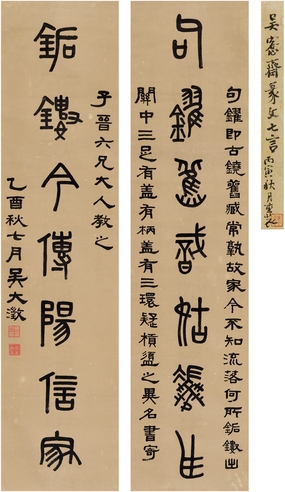 吳愙齋篆文七言 丙寅秋月
句鑃即古鐃舊藏常熟故家今不知流落何所鈷鏤出
句鑃姑馮
關中三足有蓋有柄蓋有三環疑之異名書寄
子晉六兄大人教之
鈷鏤今傳陽信家
乙酉秋七月吳大澂